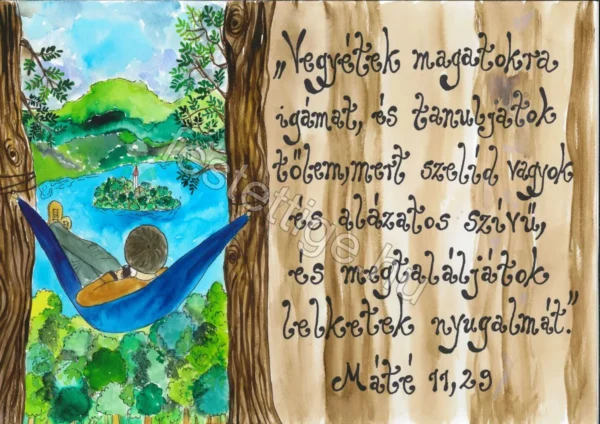 „Vegyétek magatokra
igámat, és tanuljátok
tőlem, mert szelíd vagyok
és alázatos szívű,
és megtaláljátok
lelketek nyugalmát."
Máté 11,29
festettige.hu